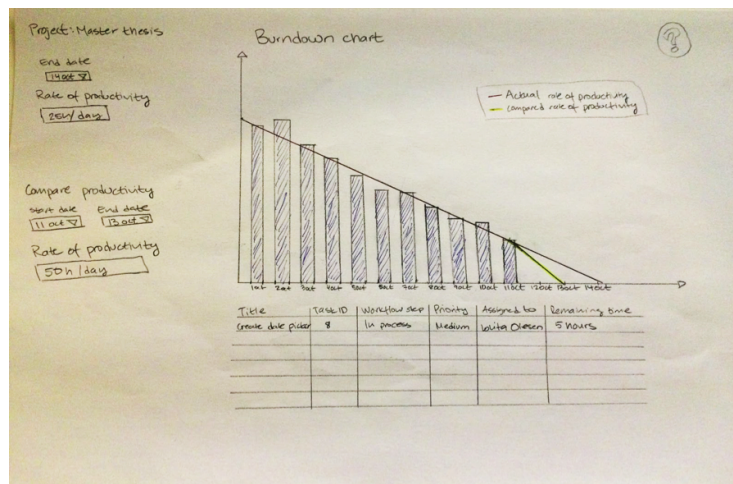 Project: Master thesis
End date
14 oct
Rate of productivity
25h/day
Compare productivity
Start date End date
11 oct 13 oct
Rate of productivity
50h/day
Burndown chart
?
Actual rate of productivity
compared rate of productivity
1oct 2oct 3oct 4oct 5oct 6oct 7oct 8oct 9oct 10oct 11oct 12oct 13oct 14oct
Title Task ID Workflow step Priority Assigned to Remaining time
Create date picker 8 In process Medium Lolita Olesen 5 hours